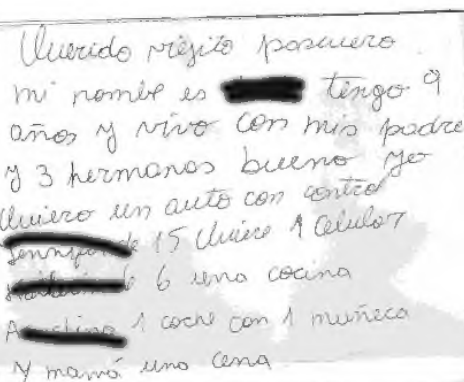 Querido viejito pascuero.
mi nombre es tengo 9
años y vivo con mis padre
y 3 hermanas bueno yo
Quiero un auto con control
de 15 Quiere 1 Celular
6 una cocina
1 coche con 1 muñeca
y mamá una Cena